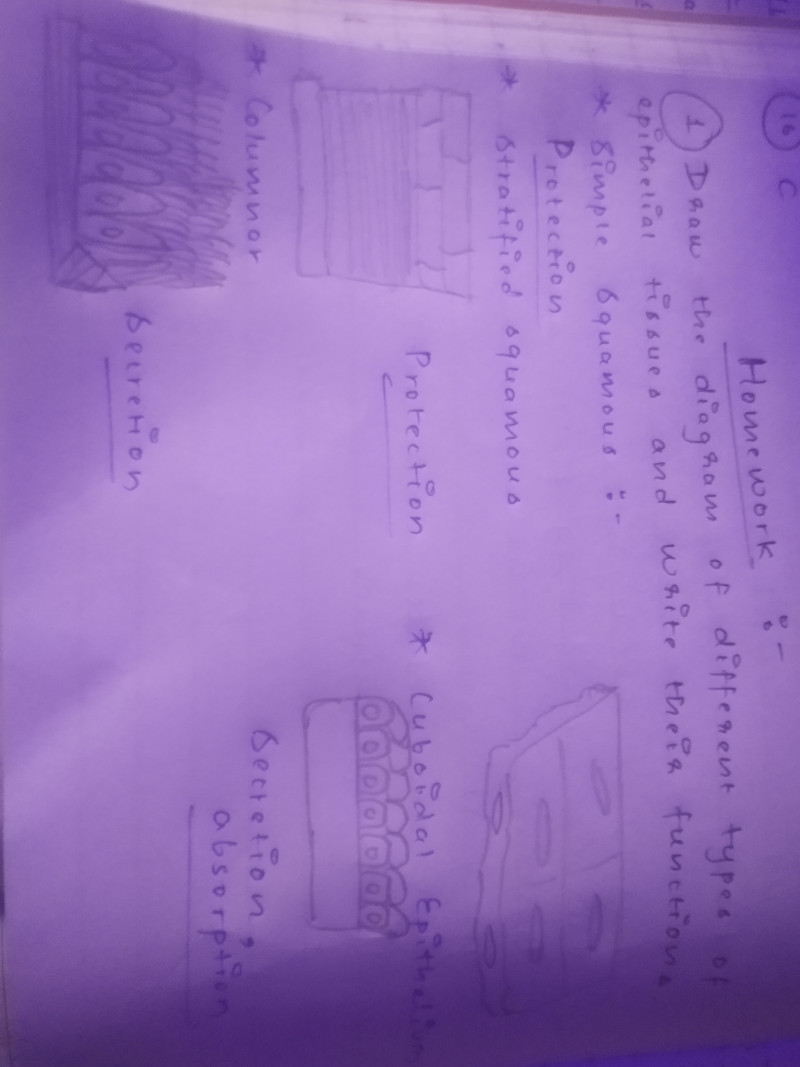 16 C
Homework :-
1 Draw the diagram of different types of
epithelial tissues and write their functions
* Simple squamous :-
Protection
* Stratified squamous
Protection
* Cuboidal Epithelium
Secretion,
absorption
* Columnar
Secretion